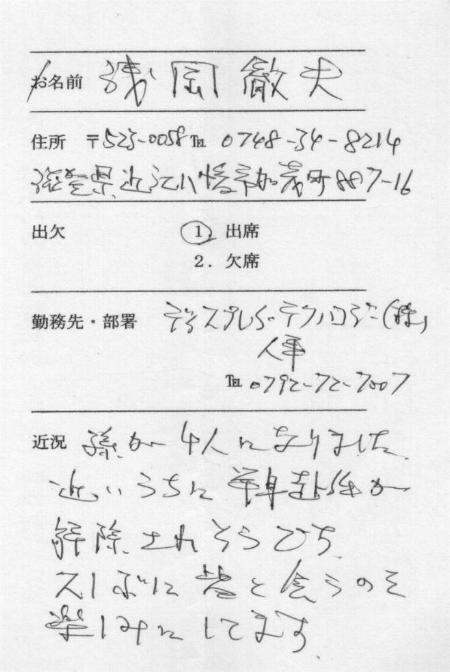 お名前 浅岡徹夫
住所 〒523-0058 ℡ 0748-34-8214
滋賀県近江八幡市加茂町887-16
出欠 1. 出席
2. 欠席
勤務先・部署 ディスプレイ・テクノロジー(株)
人事
℡ 0792-72-7007
近況 孫が4人になりました。
近いうちに単身赴任が
解除されそうです。
久しぶりに皆と会うのを
楽しみにしてます。